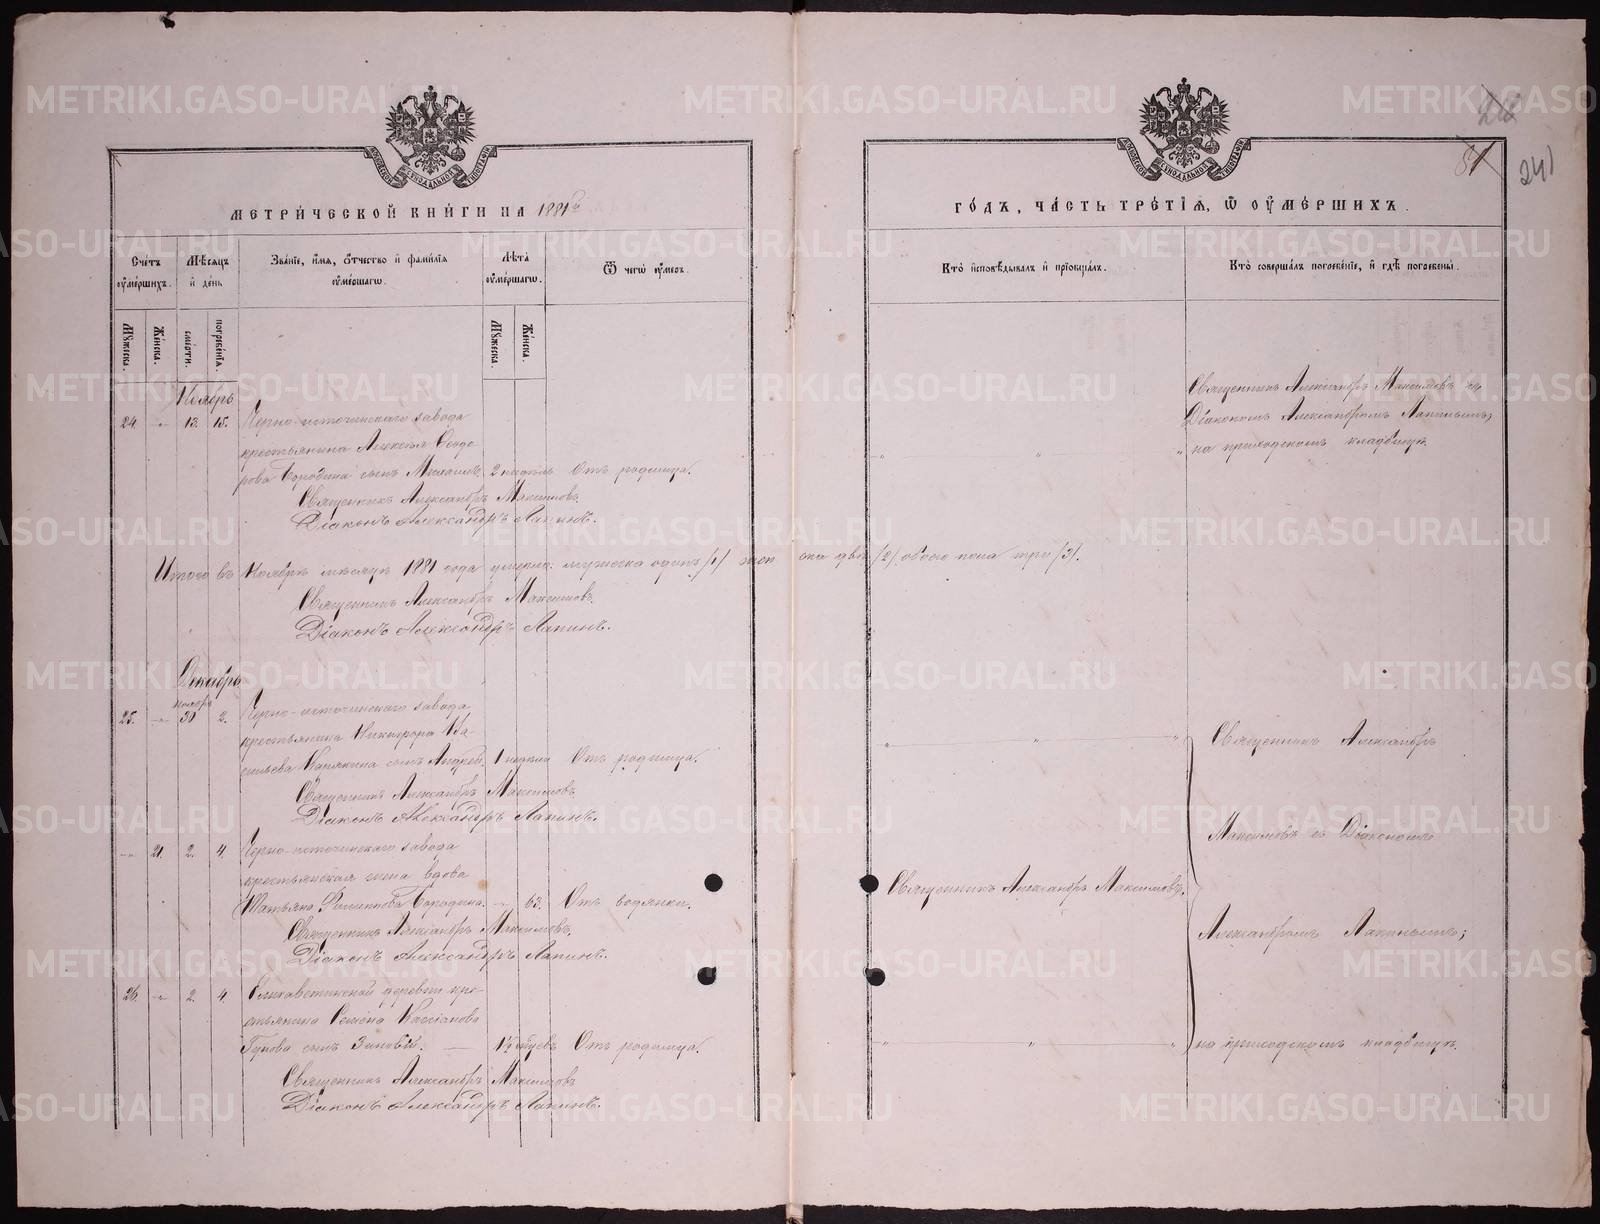 МЕТРИЧЕСКОЙ КНИГИ НА 1881й
Счетъ оумершихъ.
Мѣсяцъ и день
Званіе, имя, отчество и фамилія оумершагѡ.
Лѣта оумершагѡ.
Ѿ чегѡ оумеръ.
Мꙋжеска.
Женска.
смерти.
погребенія.
Мꙋжеска.
Женска.
Ноябрь
24. 13. 15. Черно-источинскаго завода
крестьянина Алексѣя Ѳеодо-
рова Бородина сынъ Михаилъ 2 недѣль Отъ родимца.
Священникъ Александръ Максимовъ.
Діаконъ Александръ Лапинъ.
Итого въ Ноябрѣ мѣсяцѣ 1881 года умерло: мужеска одинъ /1/ жен ска двѣ /2/ обоего пола три /3/.
Священникъ Александръ Максимовъ.
Діаконъ Александръ Лапинъ.
Декабрь
ноября
25. 30 2. Черно-источинскаго завода
крестьянина Никифора Ва-
сильева Карякина сынъ Андрей 1 недѣли Отъ родимца.
Священникъ Александръ Максимовъ.
Діаконъ Александръ Лапинъ.
21. 2. 4. Черно-источинскаго завода
крестьянская жена вдова
Татьяна Филиппова Бородина. 63. Отъ водянки.
Священникъ Александръ Максимовъ.
Діаконъ Александръ Лапинъ.
26. 2. 4. Елизаветинской деревни кре-
стьянина Семена Кассіанова
сынъ Зиновій. Отъ родимца.
Священникъ Александръ Максимовъ
Діаконъ Александръ Лапинъ.
51
241
ГОДЪ, ЧАСТЬ ТРЕТІЯ, Ѿ ОУМЕРШИХЪ.
Кто исповѣдывалъ и пріобщалъ.
Кто совершалъ погребеніе, и гдѣ погребены.
Священникъ Александръ Максимовъ съ
Діакономъ Александромъ Лапинымъ;
на приходскомъ кладбищѣ
Священникъ Александръ
Максимовъ съ Діакономъ
Священникъ Александръ Максимовъ.
Александромъ Лапинымъ;
на приходскомъ кладбищѣ.
METRIKI.GASO-URAL.RU